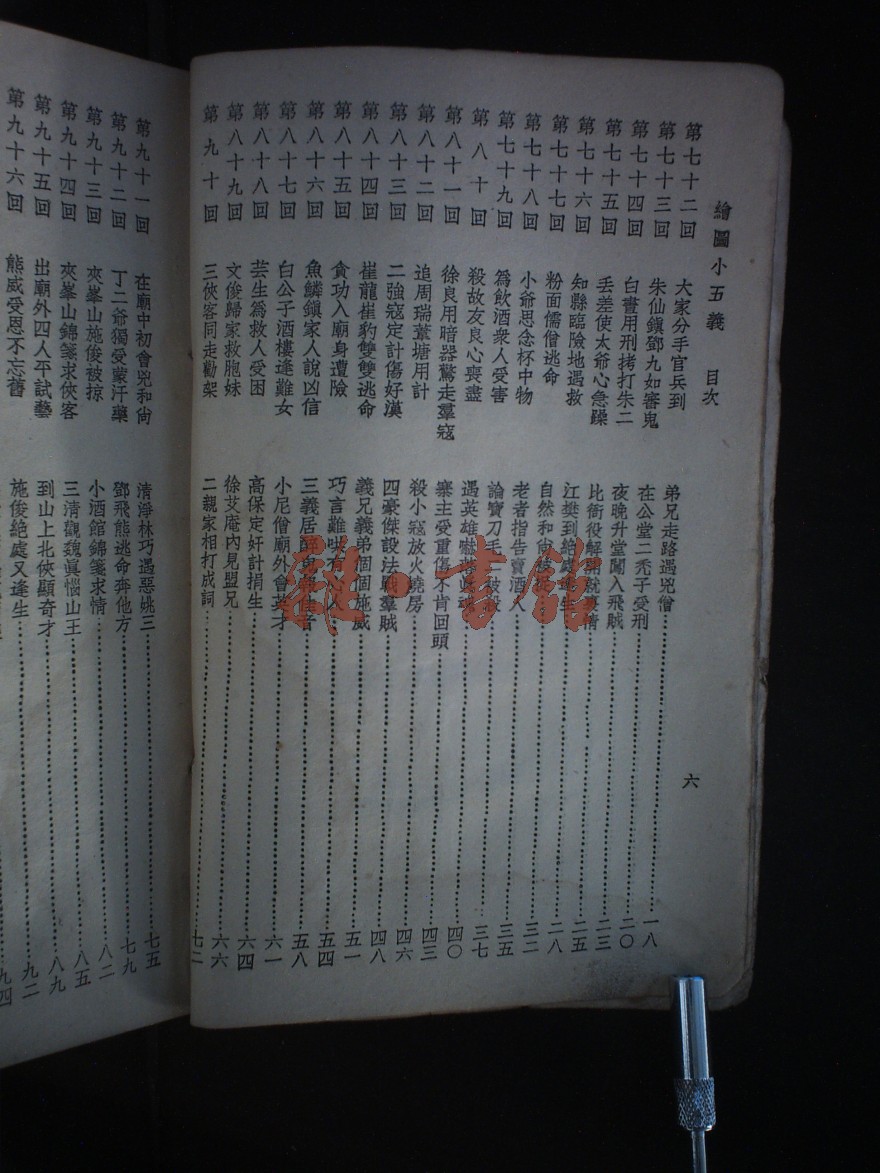 繪圖小五義 目次
六
第七十二回 大家分手官兵到 弟兄走路遇兇僧 一八
第七十三回 朱仙鎮鄧九如審鬼 在公堂二禿子受刑 二〇
第七十四回 白晝用刑拷打朱二 夜晚升堂闖入飛賊 二三
第七十五回 丟差使太爺心急躁 比衙役解開就裏情 二五
第七十六回 知縣臨險地遇救 江樊到絕處逢生 二八
第七十七回 粉面儒僧逃命 自然和尚 三二
第七十八回 小爺思念杯中物 老者指告賣酒人 三五
第七十九回 爲飲酒衆人受害 論寶刀毛 被殺 三七
第八十回 殺故友良心喪盡 遇英雄嚇 四〇
第八十一回 徐良用暗器驚走羣寇 寨主受重傷不肯回頭 四三
第八十二回 追周瑞葦塘用計 殺小寇放火燒房 四六
第八十三回 二強寇定計傷好漢 四豪傑設法戰羣賊 四八
第八十四回 崔龍崔豹雙雙逃命 義兄義弟個個施威 五一
第八十五回 貪功入廟身遭險 巧言難 人 五四
第八十六回 魚鱗鎮家人說凶信 三義居醉 者 五八
第八十七回 白公子酒樓逢難女 小尼僧廟外會英才 六一
第八十八回 芸生爲救人受困 高保定奸計捐生 六四
第八十九回 文俊歸家救胞妹 徐艾庵內見盟兄 六六
第九十回 三俠客同走勸架 二親家相打成詞 七二
第九十一回 在廟中初會兇和尚 清淨林巧遇惡姚三 七五
第九十二回 丁二爺獨受蒙汗藥 鄧飛熊逃命奔他方 七九
第九十三回 夾峯山施俊被掠 小酒館錦箋求情 八二
第九十四回 夾峯山錦箋求俠客 三清觀魏眞惱山王 八五
第九十五回 出廟外四人平試藝 到山上北俠顯奇才 八九
第九十六回 熊威受恩不忘舊 施俊絕處又逢生 九二
九四
雜·書館